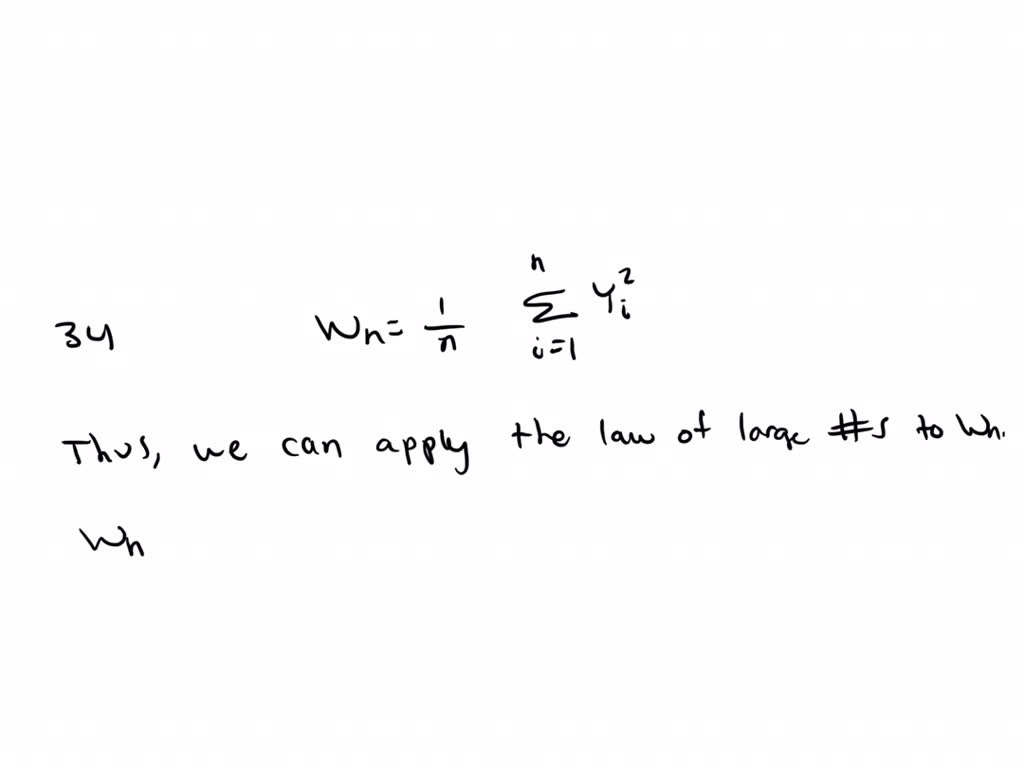 34 Wn = 1/n n Σ i=1 Yi²
Thus, we can apply the law of large #s to Wn.
Wn